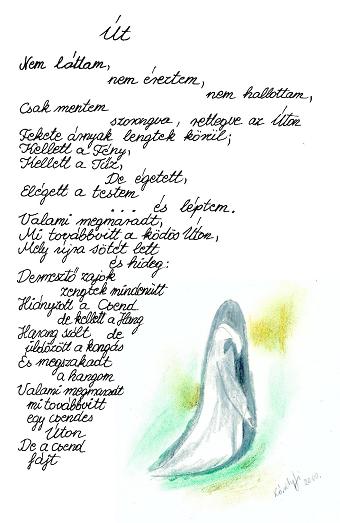 Út
Nem láttam,
nem éreztem,
nem hallottam,
Csak mentem
szorongva, rettegve az Úton
Fekete árnyak lengtek körül;
Kellett a Fény,
Kellett a Tűz,
De égetett,
Elégett a testem
... és léptem.
Valami megmaradt,
Mi továbbvitt a ködös Úton,
Mely újra sötét lett
és hideg:
Dermesztő zajok
zengtek mindenütt
Hiányzott a Csend
de kellett a Hang
Harang szólt de
üldözött a kongás
És megszakadt
a hangom
Valami megmaradt
mi továbbvitt
egy csendes
Úton
De a csend
fájt
2010.